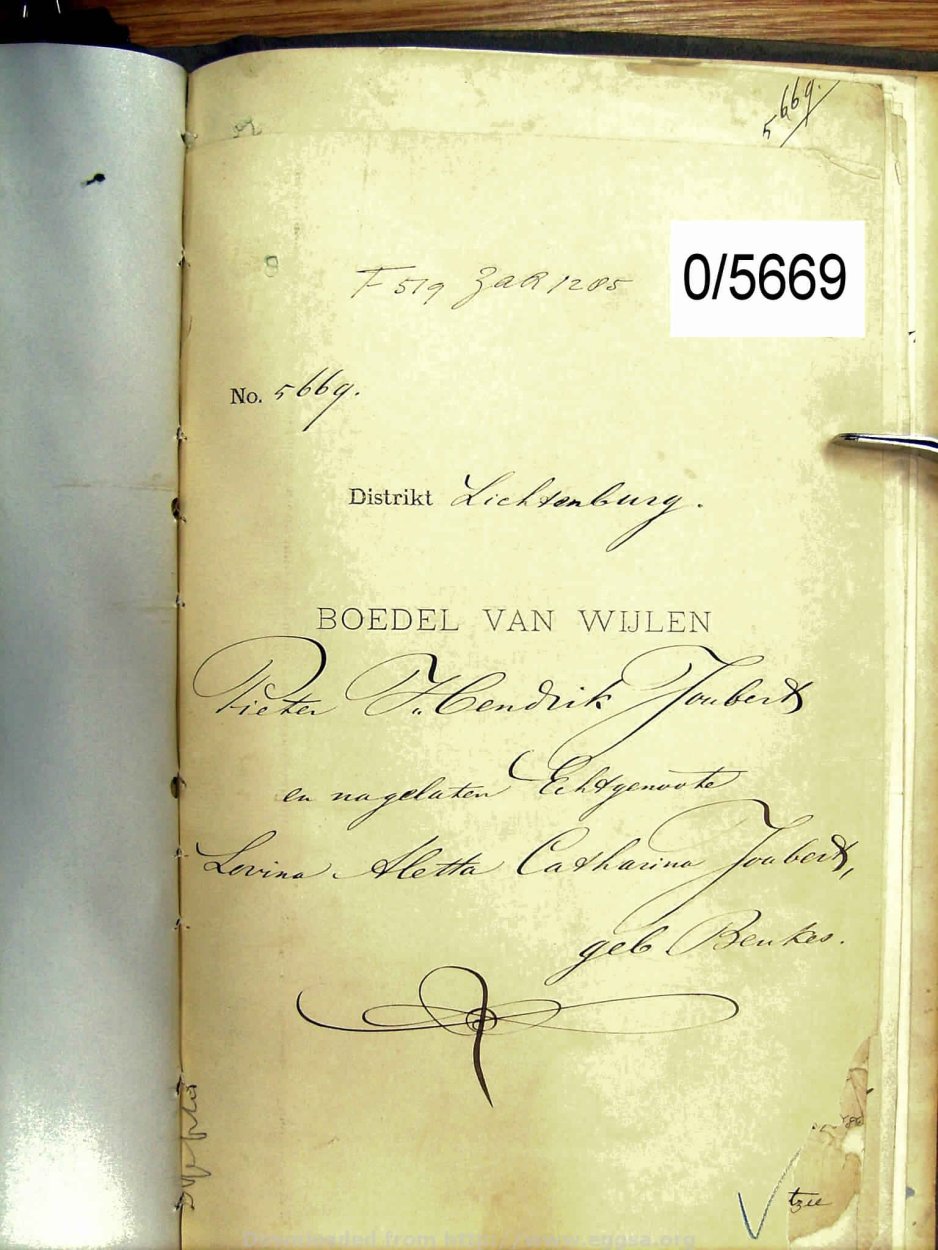 5669.
F 519 ZAR 1285
0/5669
No. 5669.
Distrikt Lichtenburg.
BOEDEL VAN WIJLEN
Pieter Hendrik Joubert
en nagelaten Echtgenoote
Lovina Aletta Catharina Joubert,
geb Beukes.
Downloaded from http://www.eggsa.org